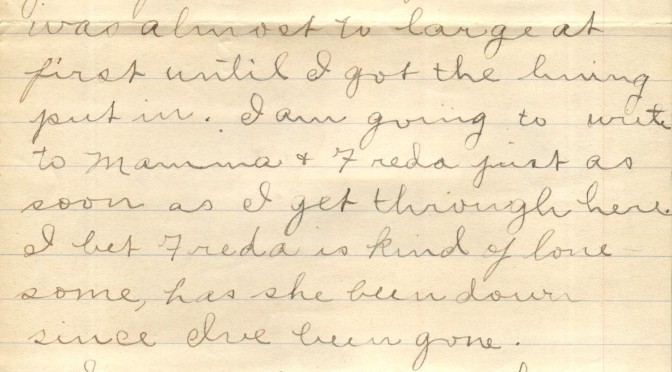 was almost to large at
first until I got the lining
put in. I am going to write
to Mamma & Freda just as
soon as I get through here.
I bet Freda is kind of lone
some, has she been down
since I've been gone.